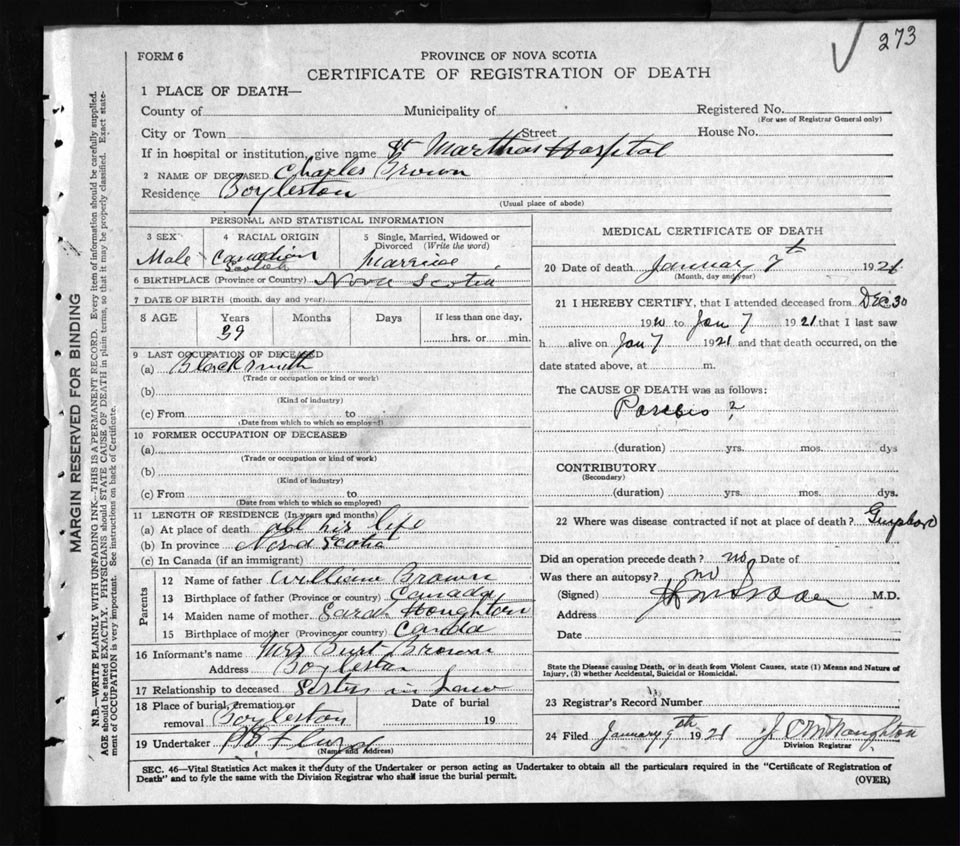 273
FORM 6
PROVINCE OF NOVA SCOTIA
CERTIFICATE OF REGISTRATION OF DEATH
1 PLACE OF DEATH—
County of Municipality of Registered No.
(For use of Registrar General only)
City or Town Street House No.
If in hospital or institution, give name St Marthas Hospital
2 NAME OF DECEASED Charles Brown
Residence Boylerston
(Usual place of abode)
PERSONAL AND STATISTICAL INFORMATION
3 SEX 4 RACIAL ORIGIN 5 Single, Married, Widowed or Divorced (Write the word)
Male Canadian Scotch Married
6 BIRTHPLACE (Province or Country) Nova Scotia
7 DATE OF BIRTH (month, day and year)
8 AGE Years Months Days If less than one day,
39 hrs. or min.
9 LAST OCCUPATION OF DECEASED
(a) Blacksmith
(Trade or occupation or kind or work)
(b)
(Kind of industry)
(c) From to
(Date from which to which so employed)
10 FORMER OCCUPATION OF DECEASED
(a)
(Trade or occupation or kind of work)
(b)
(Kind of industry)
(c) From to
(Date from which to which so employed)
11 LENGTH OF RESIDENCE (In years and months)
(a) At place of death all his life
(b) In province Nova Scotia
(c) In Canada (if an immigrant)
Parents
12 Name of father William Brown
13 Birthplace of father (Province or country) Canada
14 Maiden name of mother Sarah Houghton
15 Birthplace of mother (Province or country) Canada
16 Informant's name Mrs Burt Brown
Address Boylerston
17 Relationship to deceased Sister in Law
18 Place of burial, cremation or removal Boylerston Date of burial 19
19 Undertaker
(Name and Address)
MEDICAL CERTIFICATE OF DEATH
20 Date of death January 7th 1921
(Month, day and year)
21 I HEREBY CERTIFY, that I attended deceased from Dec 30
1920 to Jan 7 1921 that I last saw
h alive on Jan 7 1921 and that death occurred, on the
date stated above, at m.
The CAUSE OF DEATH was as follows:
Paresis ?
(duration) yrs. mos. dys
CONTRIBUTORY
(Secondary)
(duration) yrs. mos. dys.
22 Where was disease contracted if not at place of death?
Did an operation precede death? no Date of
Was there an autopsy? no
(Signed) M.D.
Address
Date
State the Disease causing Death, or in death from Violent Causes, state (1) Means and Nature of
Injury, (2) whether Accidental, Suicidal or Homicidal.
23 Registrar's Record Number
24 Filed January 9th 1921 J. C. McNaughton
Division Registrar
SEC. 46—Vital Statistics Act makes it the duty of the Undertaker or person acting as Undertaker to obtain all the particulars required in the "Certificate of Registration of
Death" and to fyle the same with the Division Registrar who shall issue the burial permit. (OVER)
MARGIN RESERVED FOR BINDING
N.B.—WRITE PLAINLY WITH UNFADING INK—THIS IS A PERMANENT RECORD. Every item of information should be carefully supplied.
AGE should be stated EXACTLY. PHYSICIANS should STATE CAUSE OF DEATH in plain terms, so that it may be properly classified. Exact state-
ment of OCCUPATION is very important. See instructions on back of Certificate.